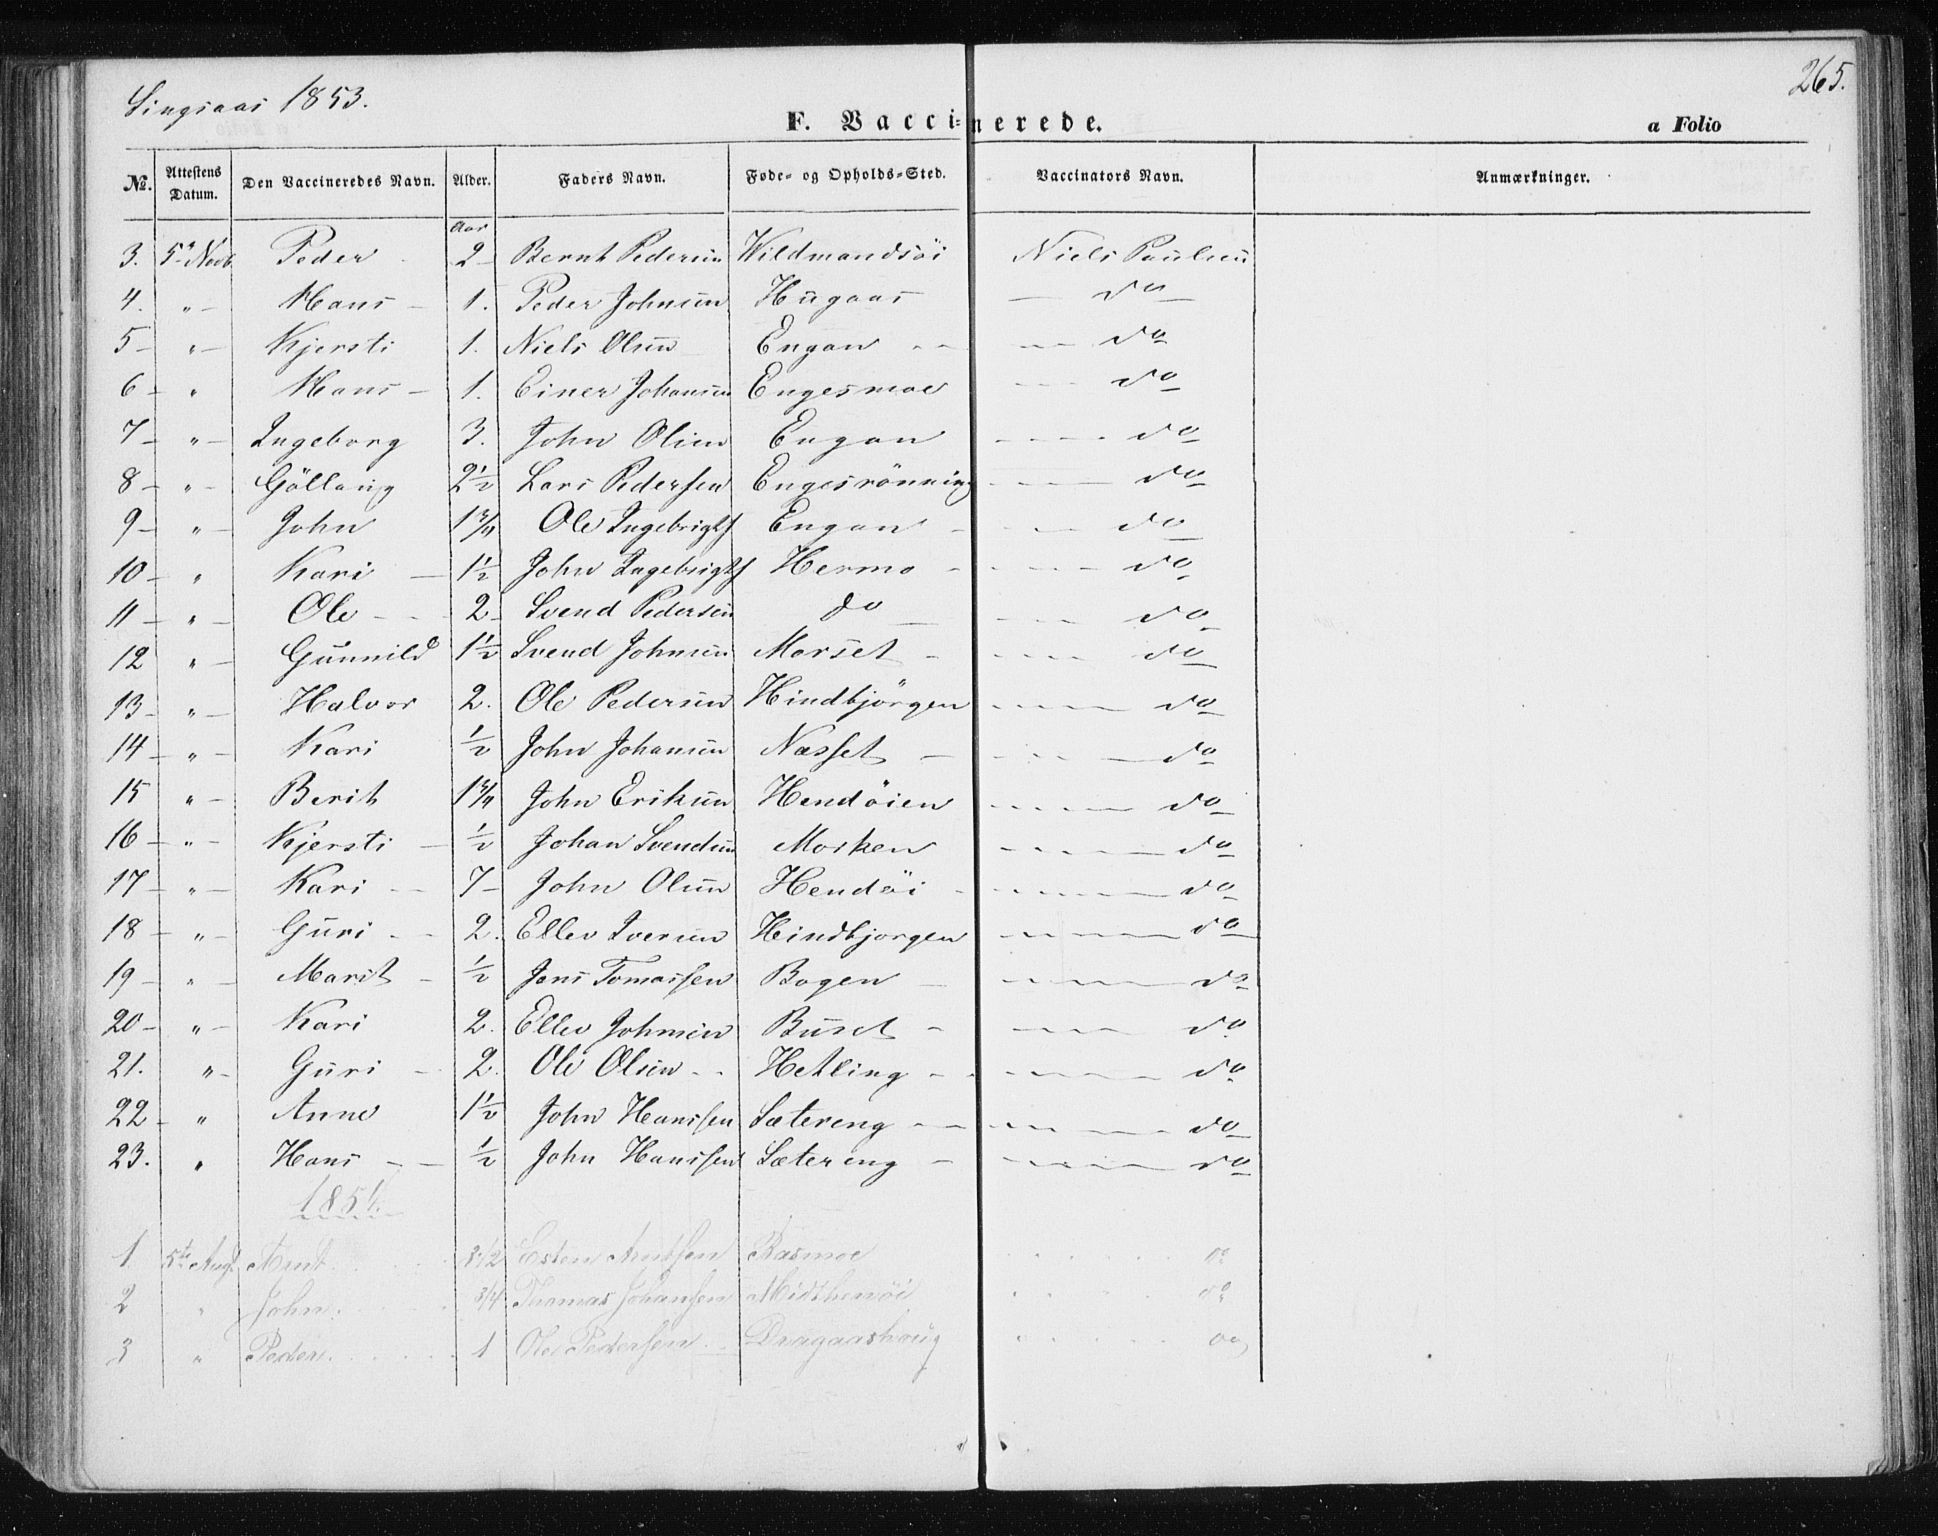 Singsaas 1853.
265.
F. Vaccinerede.
a Folio
No. Attestens Datum. Den Vaccineredes Navn. Alder. Faders Navn. Føde- og Opholds-Sted. Vaccinators Navn. Anmærkninger.
Aar
3. 5te Novb Peder 2 Bernt Pedersen Wildmandsöi Niels Paulsen
4. " Hans 1. Peder Johnsen Hugaas do
5 " Kjersti 1. Niels Olsen Engan do
6 " Hans 1. Einer Johansen Engesmoe do
7 " Ingeborg 3. John Olsen Engan do
8 " Göllaug 2½ Lars Pedersen Engesrönning do
9 " John 1¾ Ole Ingebrigts Engan do
10 " Kari 1½ John Ingebrigts Hermo do
11 " Ole 2 Svend Pedersen do do
12 " Gunnild 1½ Svend Johnsen Morset do
13 " Halvor 2. Ole Pedersen Hindbjörgen do
14 " Kari ½ John Johansen Næsset do
15 " Berit 1¾ John Eriksen Hendöien do
16 " Kjersti ½ Johan Svendsen Morken do
17 " Kari 7 John Olsen Hendöi do
18 " Guri 2. Ellev Iversen Hindbjorgen do
19 " Marit ½ Jens Tomassen Bogen do
20 " Kari 2. Ellev Johnsen Buset do
21. " Guri 2. Ole Olsen Hetling do
22 " Anne 1½ John Hanssen Sætereng do
23. " Hans ½ John Hanssen Sætereng do
1854.
1 5te Augt Arnt 3½ Esten Arntsen Rasmoe do
2 " John 3/4 Thomas Johansen Midthenöi do
3 " Peder 1 Ole Pedersen Dragaashoug do